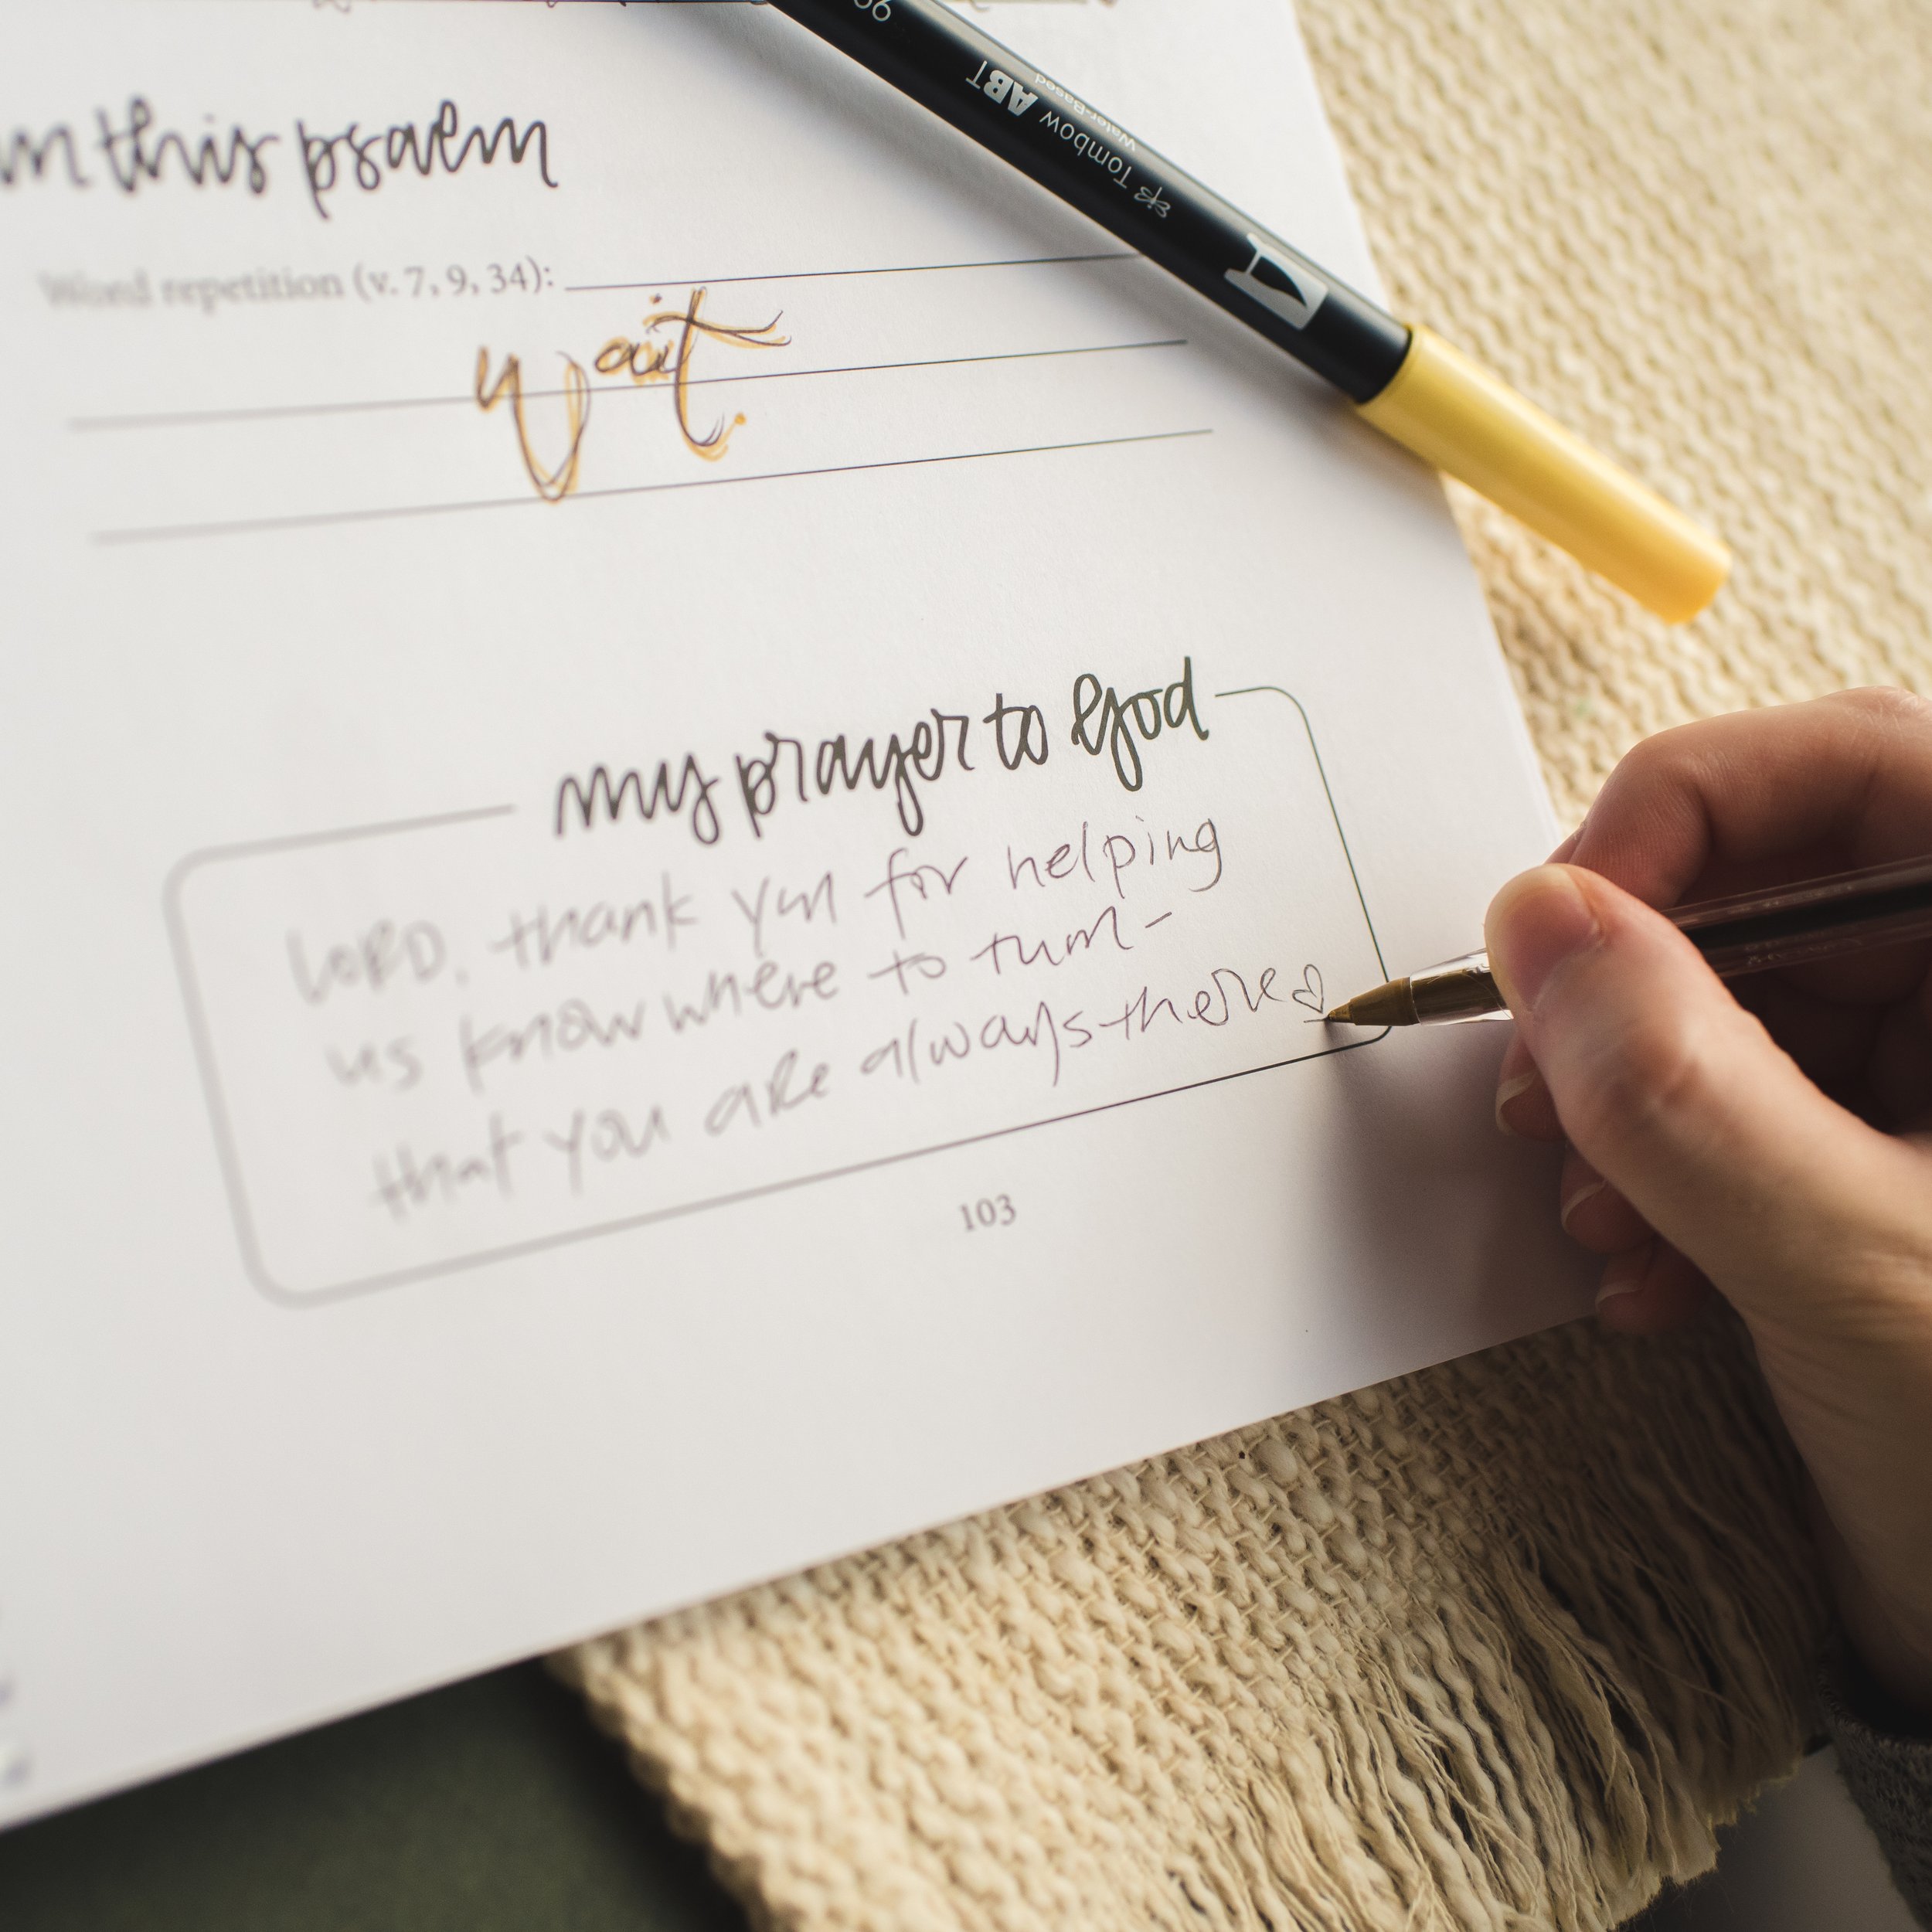 in this psalm
Word repetition (v. 7, 9, 34):
wait.
my prayer to God
LORD, thank you for helping
us know where to turn-
that you are always there♡
103
Tombow ABT
Water-Based